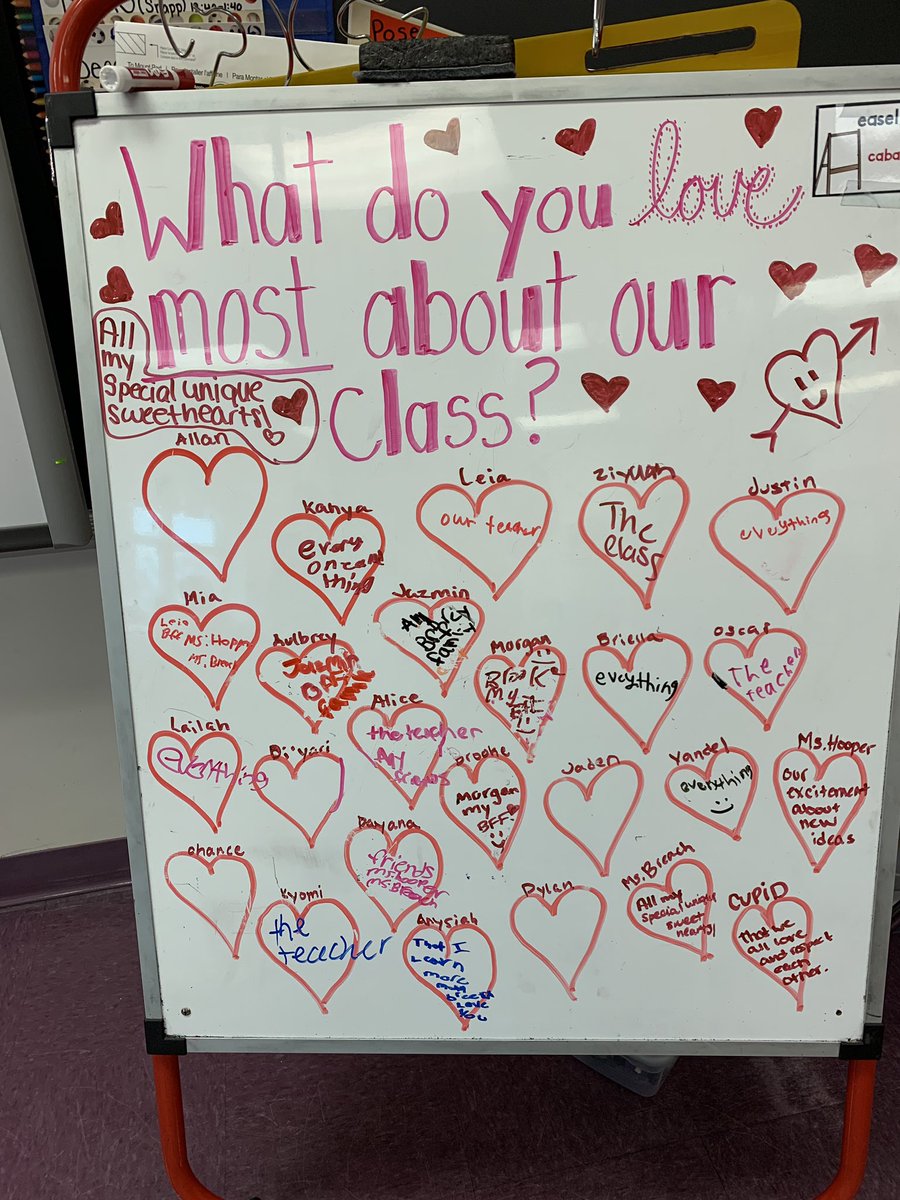 (Snopp) 12:40-1:40
Pose
EXPO
easel
caba
What do you love
most about our
Class?
All
my
special unique
sweethearts!
Allan
Kanya
every
one and
thing
Leia
our teacher
Ziyuan
The
class
Justin
everything
Mia
Leia
BFF Ms. Hopper
Ms. Breach
Aubrey
Jazmin
BFF
family
Jazmin
My
BFF
Morgan
Brooke
My
BFF
Briella
evething
Oscar
The
teacher
Lailah
everything
Di'yari
Alice
the teacher
My
friends
Brooke
Morgan
my
BFF
Jaden
Yandel
everything
Ms. Hooper
our
excitement
about
new
ideas
chance
Dayana
friends
Ms. Hooper
Ms. Breach
Kyomi
the
teacher
Anysiah
That I
Learn
more
Love
You
Dylan
Ms. Breach
All my
special unique
sweet
hearts!
CUPID
that we
all love
and respect
each
other.